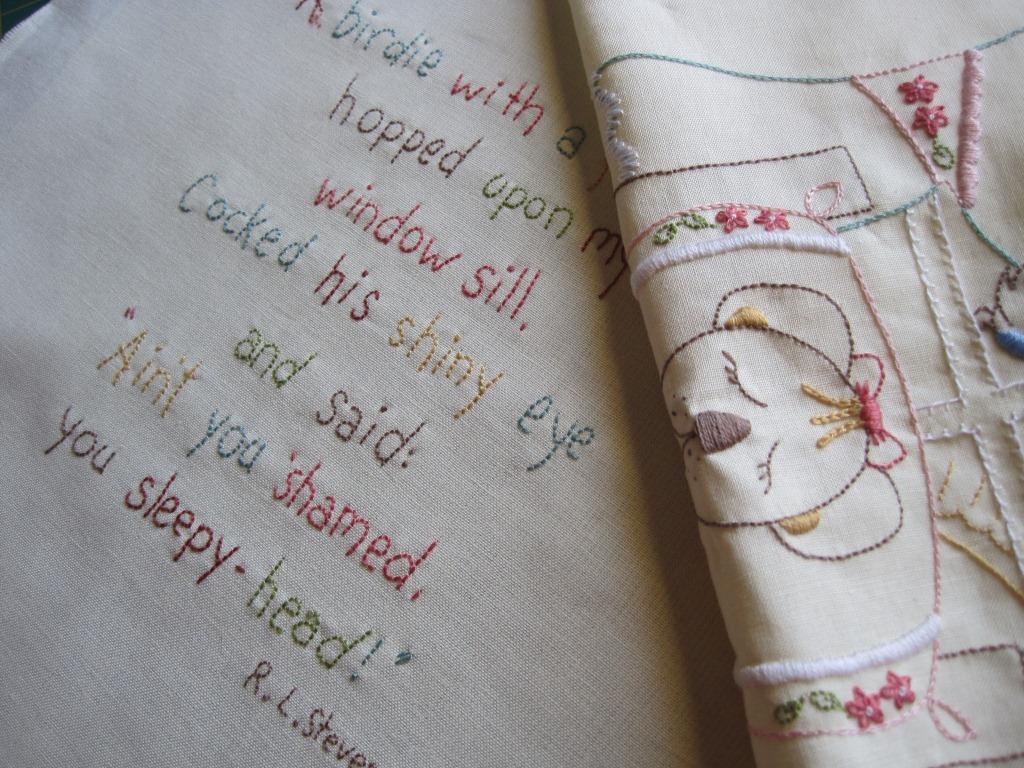 A birdie with a
hopped upon my
window sill,
Cocked his shiny eye
and said:
"Ain't you 'shamed,
you sleepy-head!"
R.L.Steve